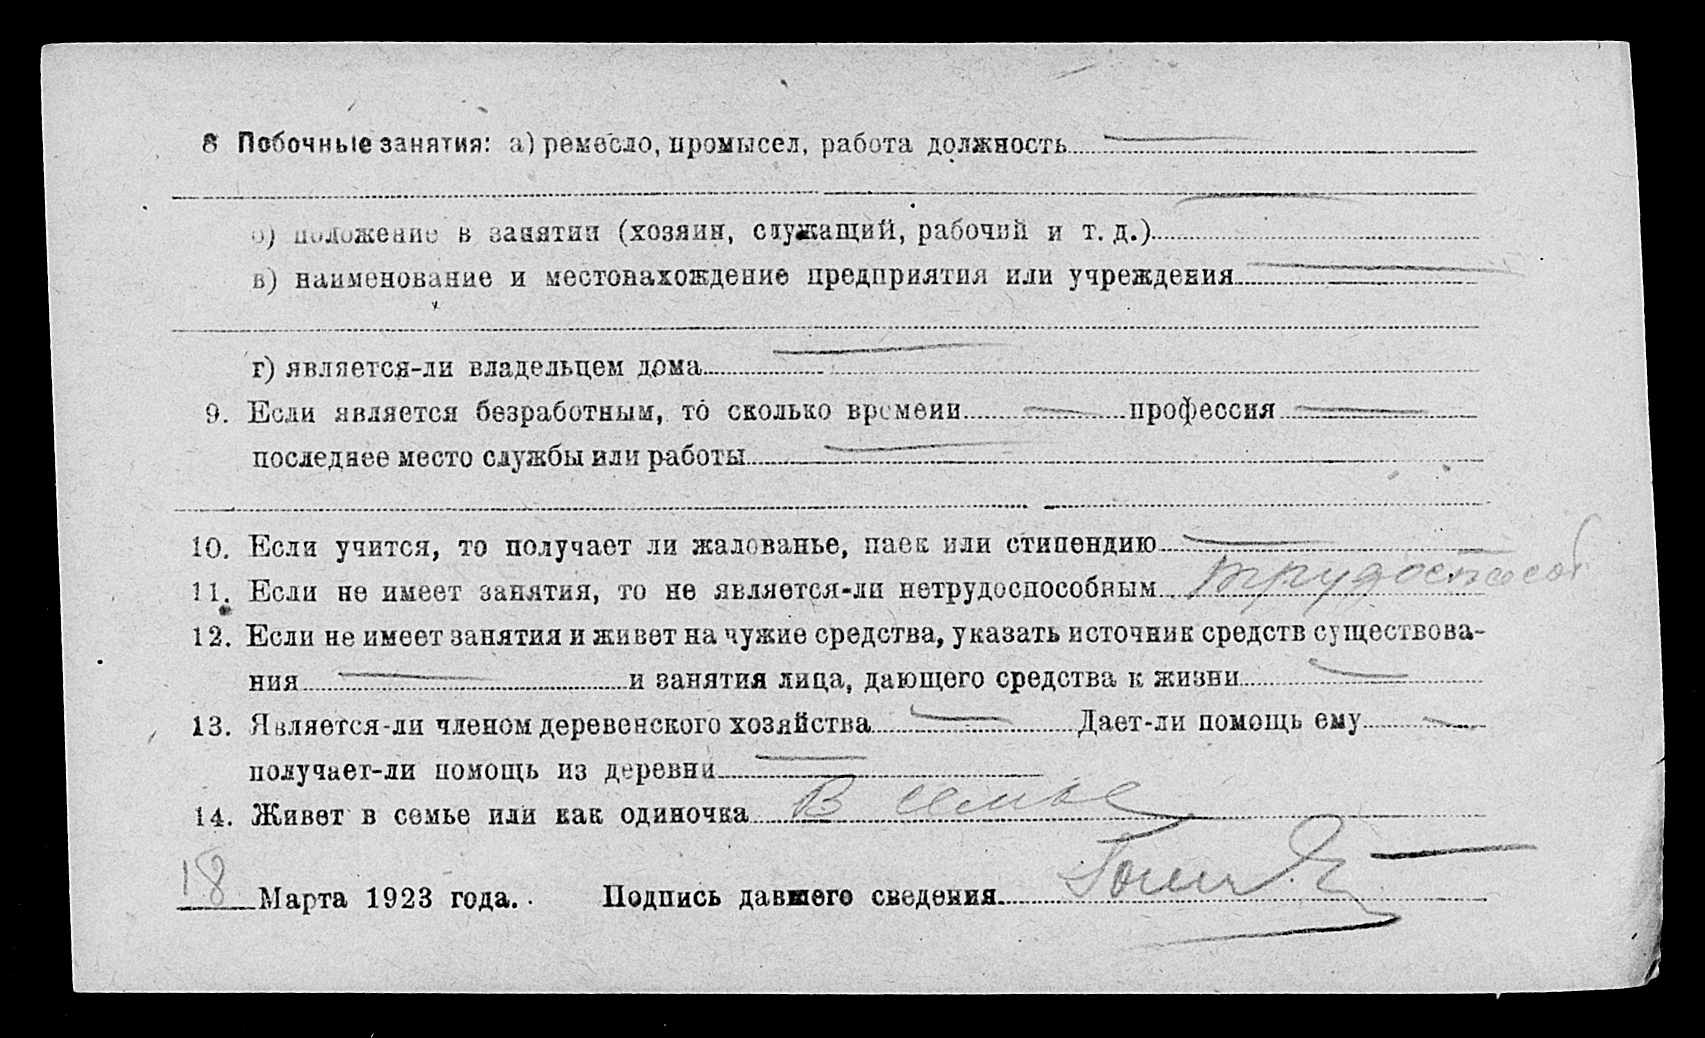 8 Побочные занятия: а) ремесло, промысел, работа должность —
б) положение в занятии (хозяин, служащий, рабочий и т. д.) —
в) наименование и местонахождение предприятия или учреждения —
г) является-ли владельцем дома —
9. Если является безработным, то сколько времени — профессия —
последнее место службы или работы —
10. Если учится, то получает ли жалованье, паек или стипендию —
11. Если не имеет занятия, то не является-ли нетрудоспособным трудоспособ
12. Если не имеет занятия и живет на чужие средства, указать источник средств существова-
ния — и занятия лица, дающего средства к жизни —
13. Является-ли членом деревенского хозяйства — Дает-ли помощь ему —
получает-ли помощь из деревни —
14. Живет в семье или как одиночка В семье
18 Марта 1923 года. Подпись давшего сведения